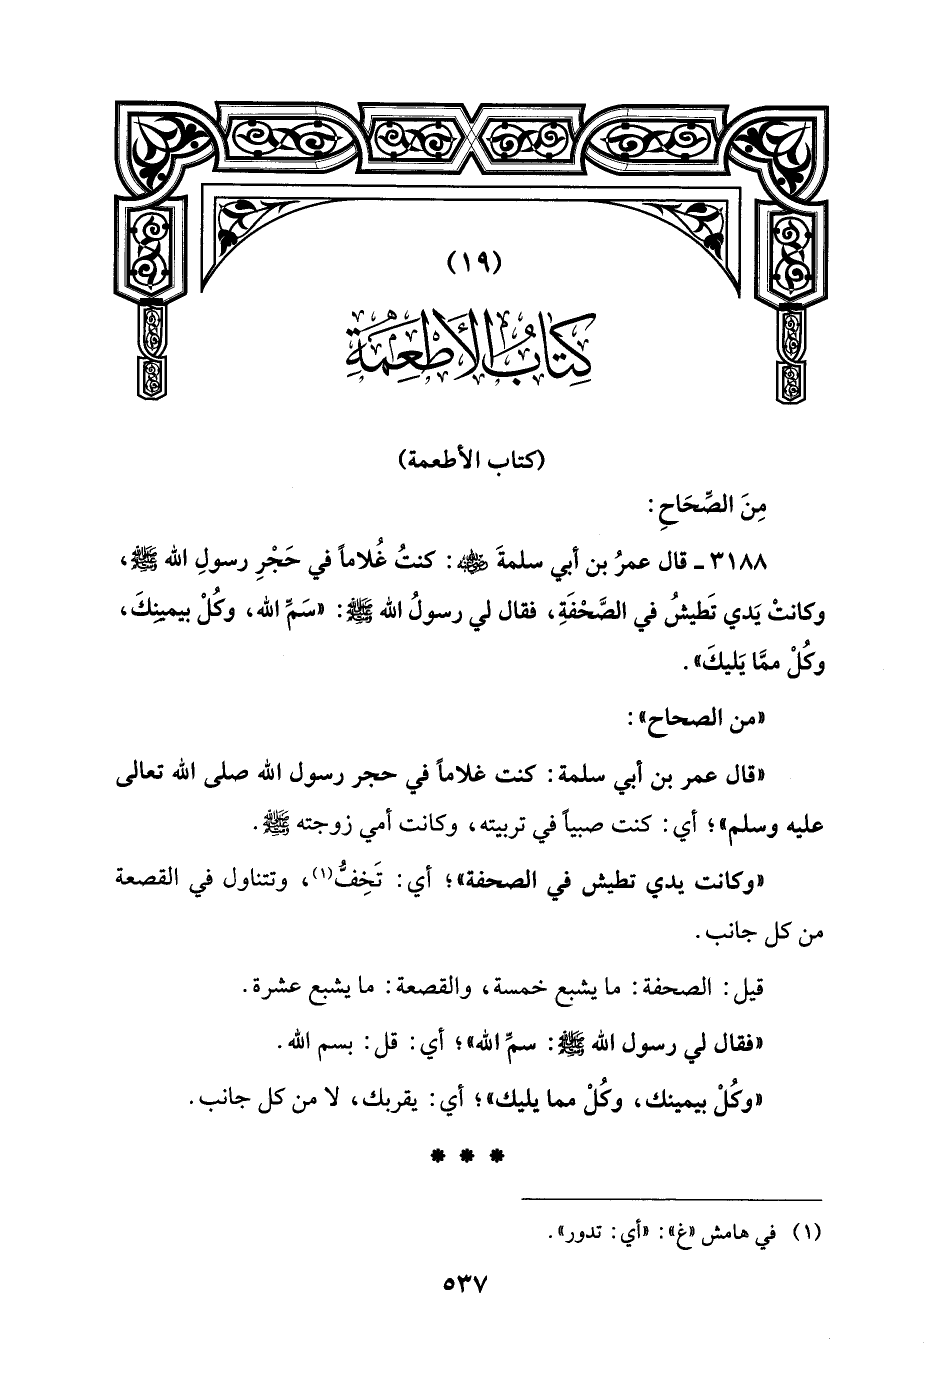 (١٩)
كِتَابُ الأَطْعِمَةِ
(كتاب الأطعمة)
مِنَ الصِّحَاحِ:
٣١٨٨ ـ قال عمرُ بن أبي سلمةَ ﵁: كنتُ غُلاماً في حَجْرِ رسولِ الله ﷺ،
وكانتْ يَدي تَطيشُ في الصَّحْفَةِ، فقال لي رسولُ الله ﷺ: «سَمِّ الله، وكُلْ بيمينِكَ،
وكُلْ ممَّا يَليكَ».
«من الصحاح»:
«قال عمر بن أبي سلمة: كنت غلاماً في حجر رسول الله صلى الله تعالى
عليه وسلم»؛ أي: كنت صبياً في تربيته، وكانت أمي زوجته ﷺ.
«وكانت يدي تطيش في الصحفة»؛ أي: تَخِفُّ(١)، وتتناول في القصعة
من كل جانب.
قيل: الصحفة: ما يشبع خمسة، والقصعة: ما يشبع عشرة.
«فقال لي رسول الله ﷺ: سمِّ الله»؛ أي: قل: بسم الله.
«وكُلْ بيمينك، وكُلْ مما يليك»؛ أي: يقربك، لا من كل جانب.
* * *
(١) في هامش «غ»: «أي: تدور».
٥٣٧